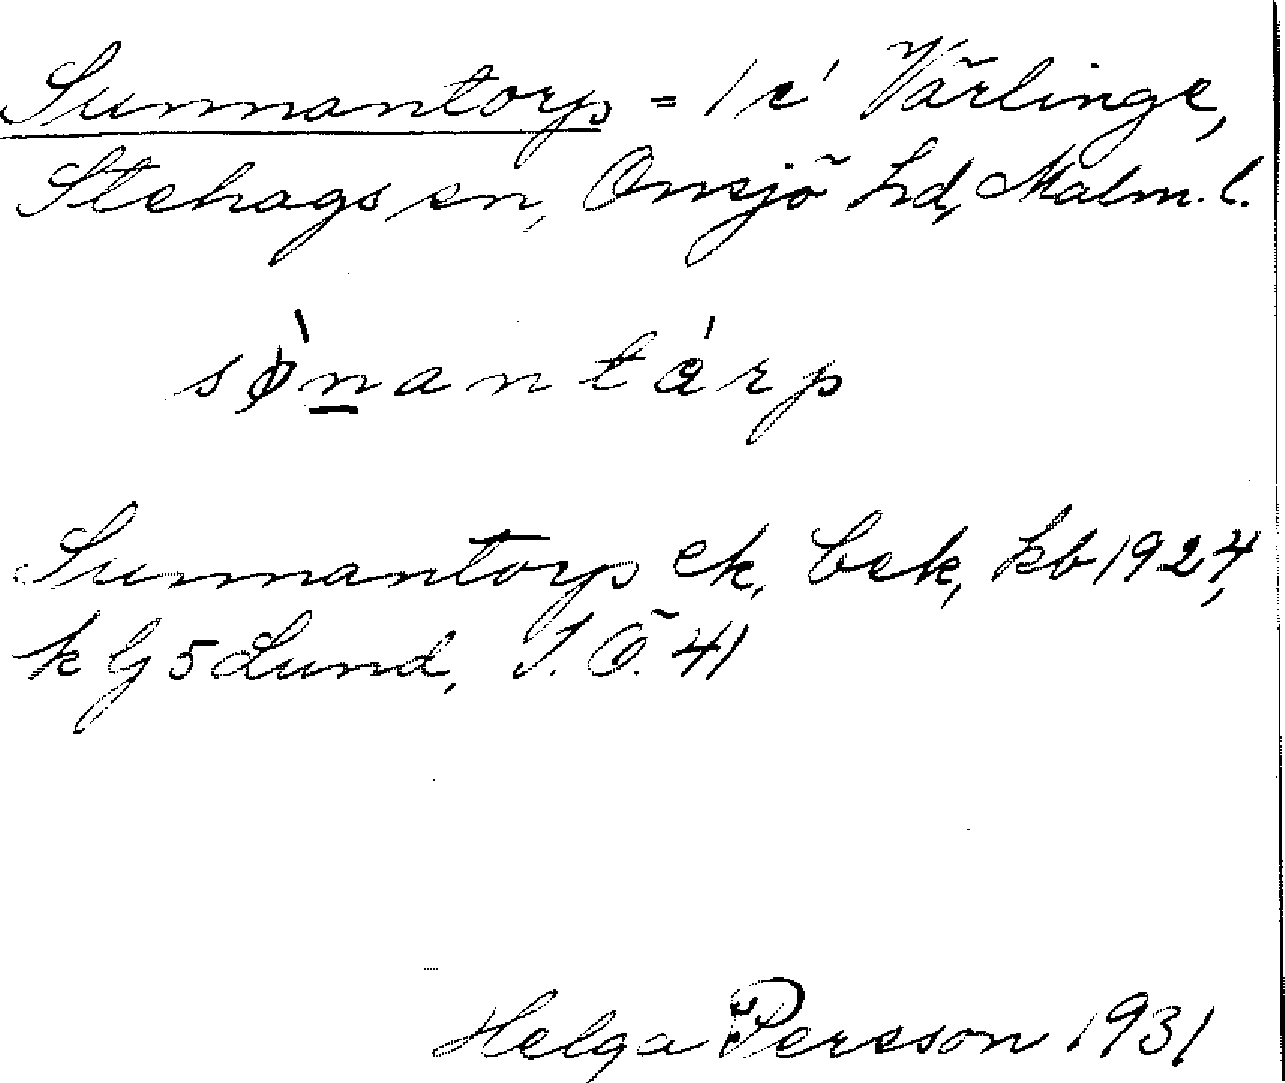 Sunnantorp = 1 c' Vårlinge,
Stehags sn, Onsjö hd, Malm. l.
sø̀nantárp
Sunnantorp ek, bek, kb 1924,
k G 5 Lund, J. Ö. 41
Helga Persson 1931